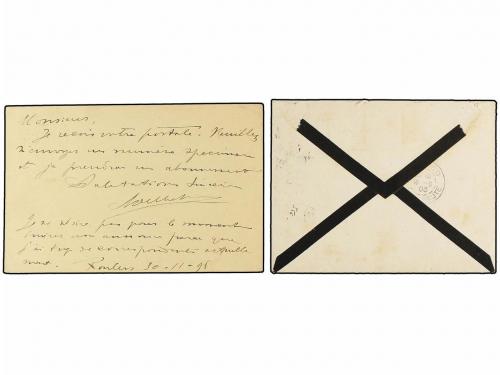 Monsieur,
Je reçois votre postale. Veuillez
m'envoyer un numéro specimen
et je prendrai un abonnement
Salutations
Je ne désire pas pour le moment
une annonce parce que
j'ai trop de correspondants actuelle
ment. Roulers 30-11-98